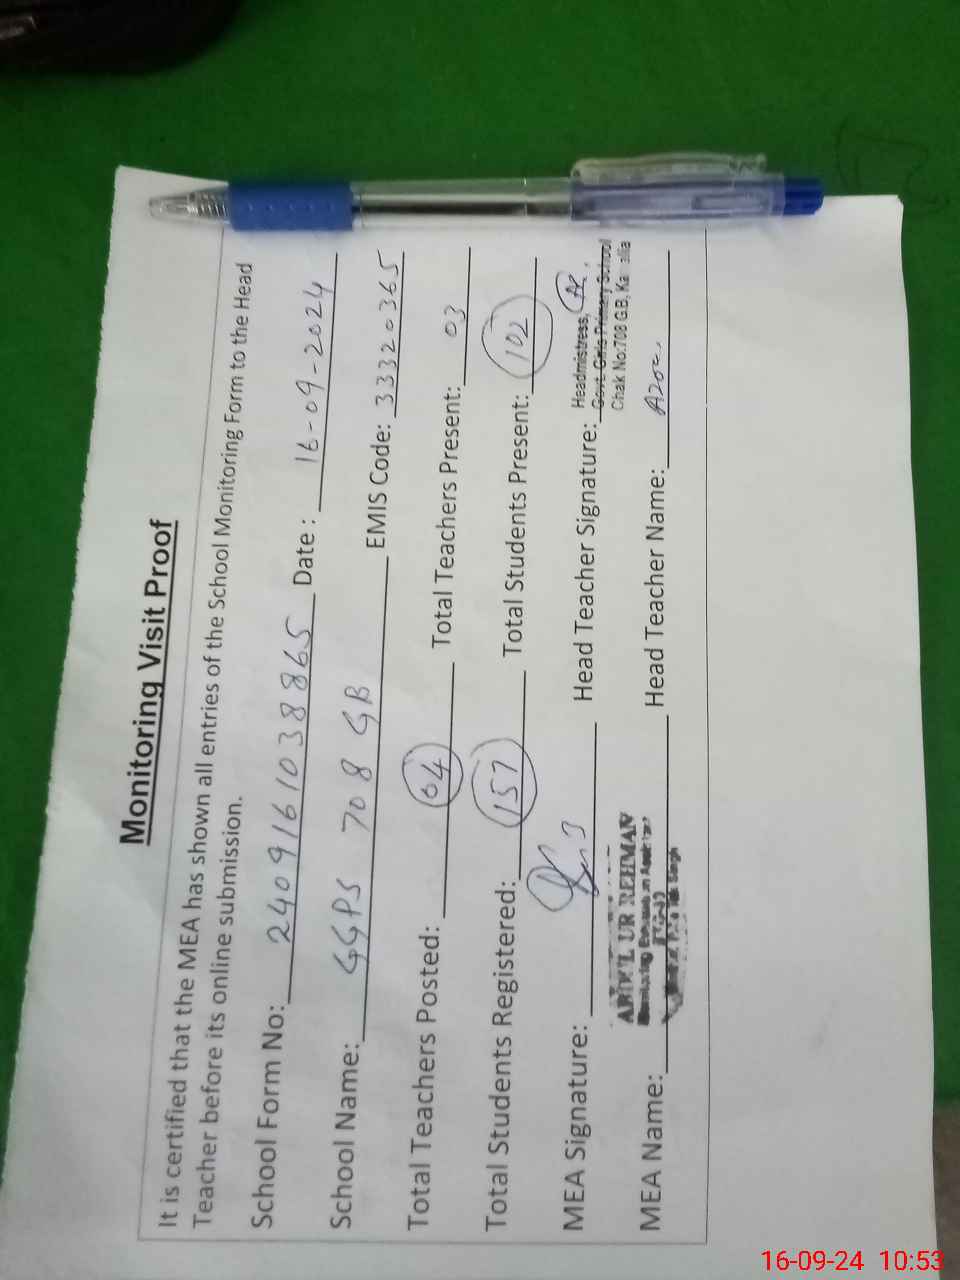 Monitoring Visit Proof
It is certified that the MEA has shown all entries of the School Monitoring Form to the Head
Teacher before its online submission.
School Form No: 2409161038865 Date : 16-09-2024
School Name: GGPS 708 GB EMIS Code: 33320365
Total Teachers Posted: 04 Total Teachers Present: 03
Total Students Registered: 157 Total Students Present: 102
MEA Signature: Head Teacher Signature:
Headmistress,
Govt. Girls Primary School
Chak No:708 G.B,
MEA Name: Head Teacher Name:
ABDUL UR REHMAN
16-09-24 10:53